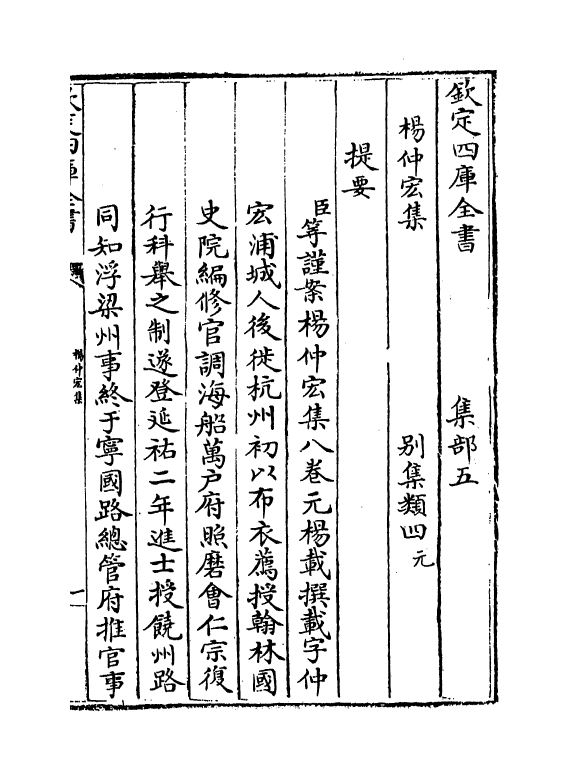 欽定四庫全書　集部五
楊仲宏集　别集類四元
提要
臣等謹案楊仲宏集八卷元楊載撰載字仲
宏浦城人後徙杭州初以布衣薦授翰林國
史院編修官調海船萬户府照磨會仁宗復
行科舉之制遂登延祐二年進士授饒州路
同知浮梁州事終于寧國路總管府推官事
欽定四庫全書
楊仲宏集
一